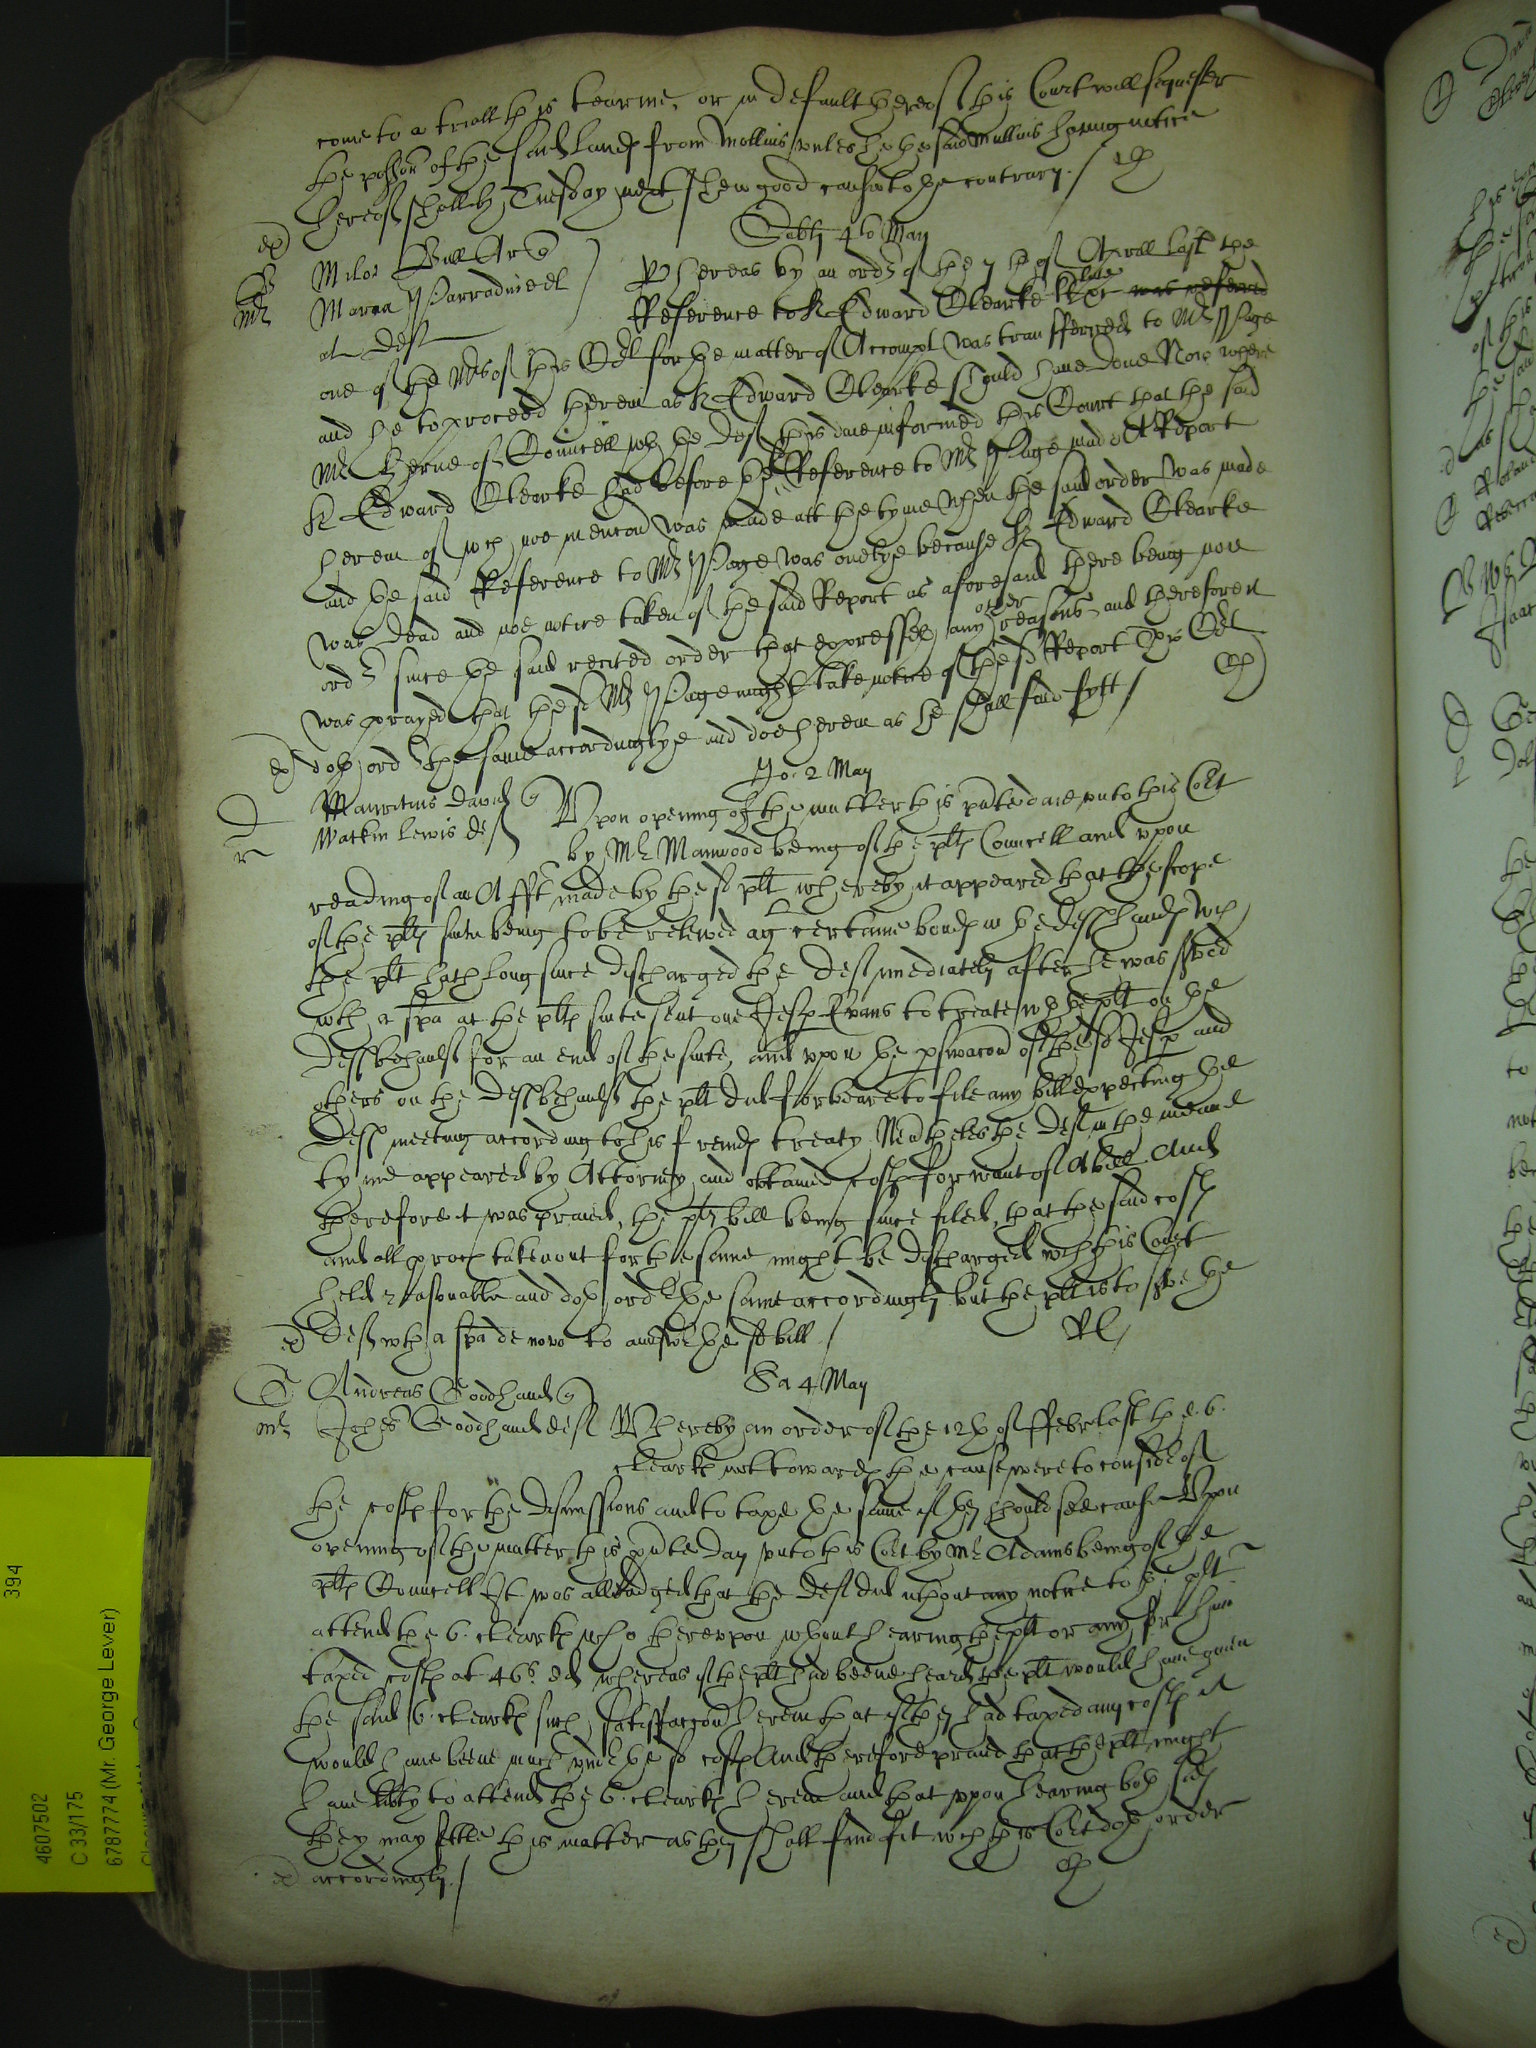 come to a triall this tearme, or in default thereof this Court will sequester
the possion of the said land from Mollins unles he the said Mullins having notice
hereof shall by Tuesday next shew good cause to the contrary /
Sabti 4to Maij
Miles Bull Ar q
Maria Parradine et
al deft
Whereas by an ordr of the 7th of Aprill last the
Reference to Sr Edward Clearke late was referred
one of the Mrs of this Cort for the matter of Accompt was transferred to Mr Page
and he to proceed therein as Sr Edward Clearke should have done Now
Mr Herne of Councell wth the deft this daie informed this Court that the said
Sr Edward Clearke had before the Reference to Mr Page made A Report
therein of wch noe mencon was made att the tyme when the said order was made
and the said Reference to Mr Page was onelye because Sr Edward Clearke
was dead and noe notice taken of the said Report as aforesaid there being non
ordr since the said recited order that expresseth any other reasons and therefore it
was prayed that the sd Mr Page might take notice of the sd Report The Cort
doth ordr the same accordinglye and doe therein as he shall find fytt /
Jo. 2 May
Mauritius David q
Watkin Lewis def
Upon opening of the matter this pnte daie unto this Cort
by Mr Manwood being of the plts Councell and upon
reading of an Afft made by the sd plt whereby it appeared that the scope
of the plts suite being to be releived agt certaine bonds in the defts hands wch
the plt hath long since discharged the deft imediately after he was served
wth a spa at the plts suite sent one Jesp Evans to treate wth the plt on the
defts behaulf for an end of the suite, and upon the pswacon of the sd Jesp and
others on the defts behaulf the plt did forbeare to file any bill expecting the
defts meeting according to his freinds treaty Nevertheles the deft in the meane
tyme appeared by Attorney and obtained costs for want of A bill And
therefore it was praied, the plts bill being since filed, that the said costs
and all proces taken out for the same might be discharged wch this Court
held reasonable and doth ordr the same accordingly but the plt is to serve the
deft wth a spa de novo to answer the sd bill /
Sa 4 May
Andreas Goodhand q
Johes Goodhand def
Where by an order of the 12th of ffebr last the .6.
clearks not towards the cause were to consider of
the costs for the dismissions and to taxe the same if they should see cause Upon
opening of the matter this pnte day unto this Cort by Mr Adams being of the
plts Councell It was alleadged that the deft did without any notice to the plt
attend the 6. clearks who thereupon wthout hearing the plt or any for him
taxed costs at 46s. 8d whereas if the plt had beene heard the plt would have given
the said 6. clearks such satisfaccon therein that if they had taxed any costs it
would have beene much undr the sd costs And therefore praied that the plt might
have libty to attend the 6. clearks therein and that upon hearing both sides
they may settle this matter as they shall find fit wch this Cort doth order
accordingly. /
394
4607502
C 33/175
6787774 (Mr. George Lever)